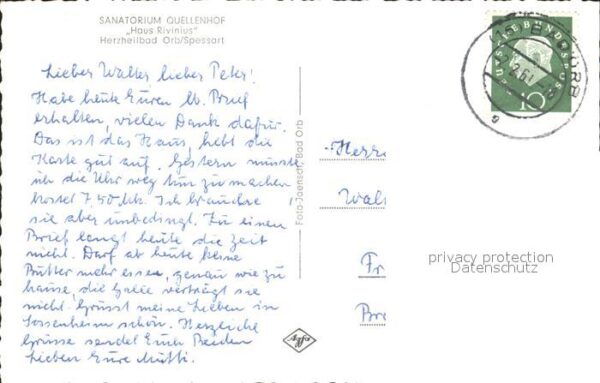 SANATORIUM QUELLENHOF
„Haus Rivinius"
Herzheilbad Orb/Spessart
Lieber Walter lieber Peter!
Habe heute Euren lb. Brief
erhalten, vielen Dank dafür.
Das ist das Haus, hebt die
Karte gut auf. Gestern musste
ich die Uhr weg tun zu machen
kostet 7,50 Mk. Ich brauche
sie aber unbedingt. Für einen
Brief langt heute die Zeit
nicht. Darf ab heute keine
Butter mehr essen, genau wie zu
hause, die Galle verträgt sie
nicht. Grüsst meine Lieben in
Sossenheim schön. Herzliche
Grüsse sendet Euch Beiden
Lieben Eure Mutti.
Foto-Jaensch/Bad Orb
Agfa
DEUTSCHE BUNDESPOST
10
BAD ORB
Herrn
Wal
Fr
Br
privacy protection
Datenschutz